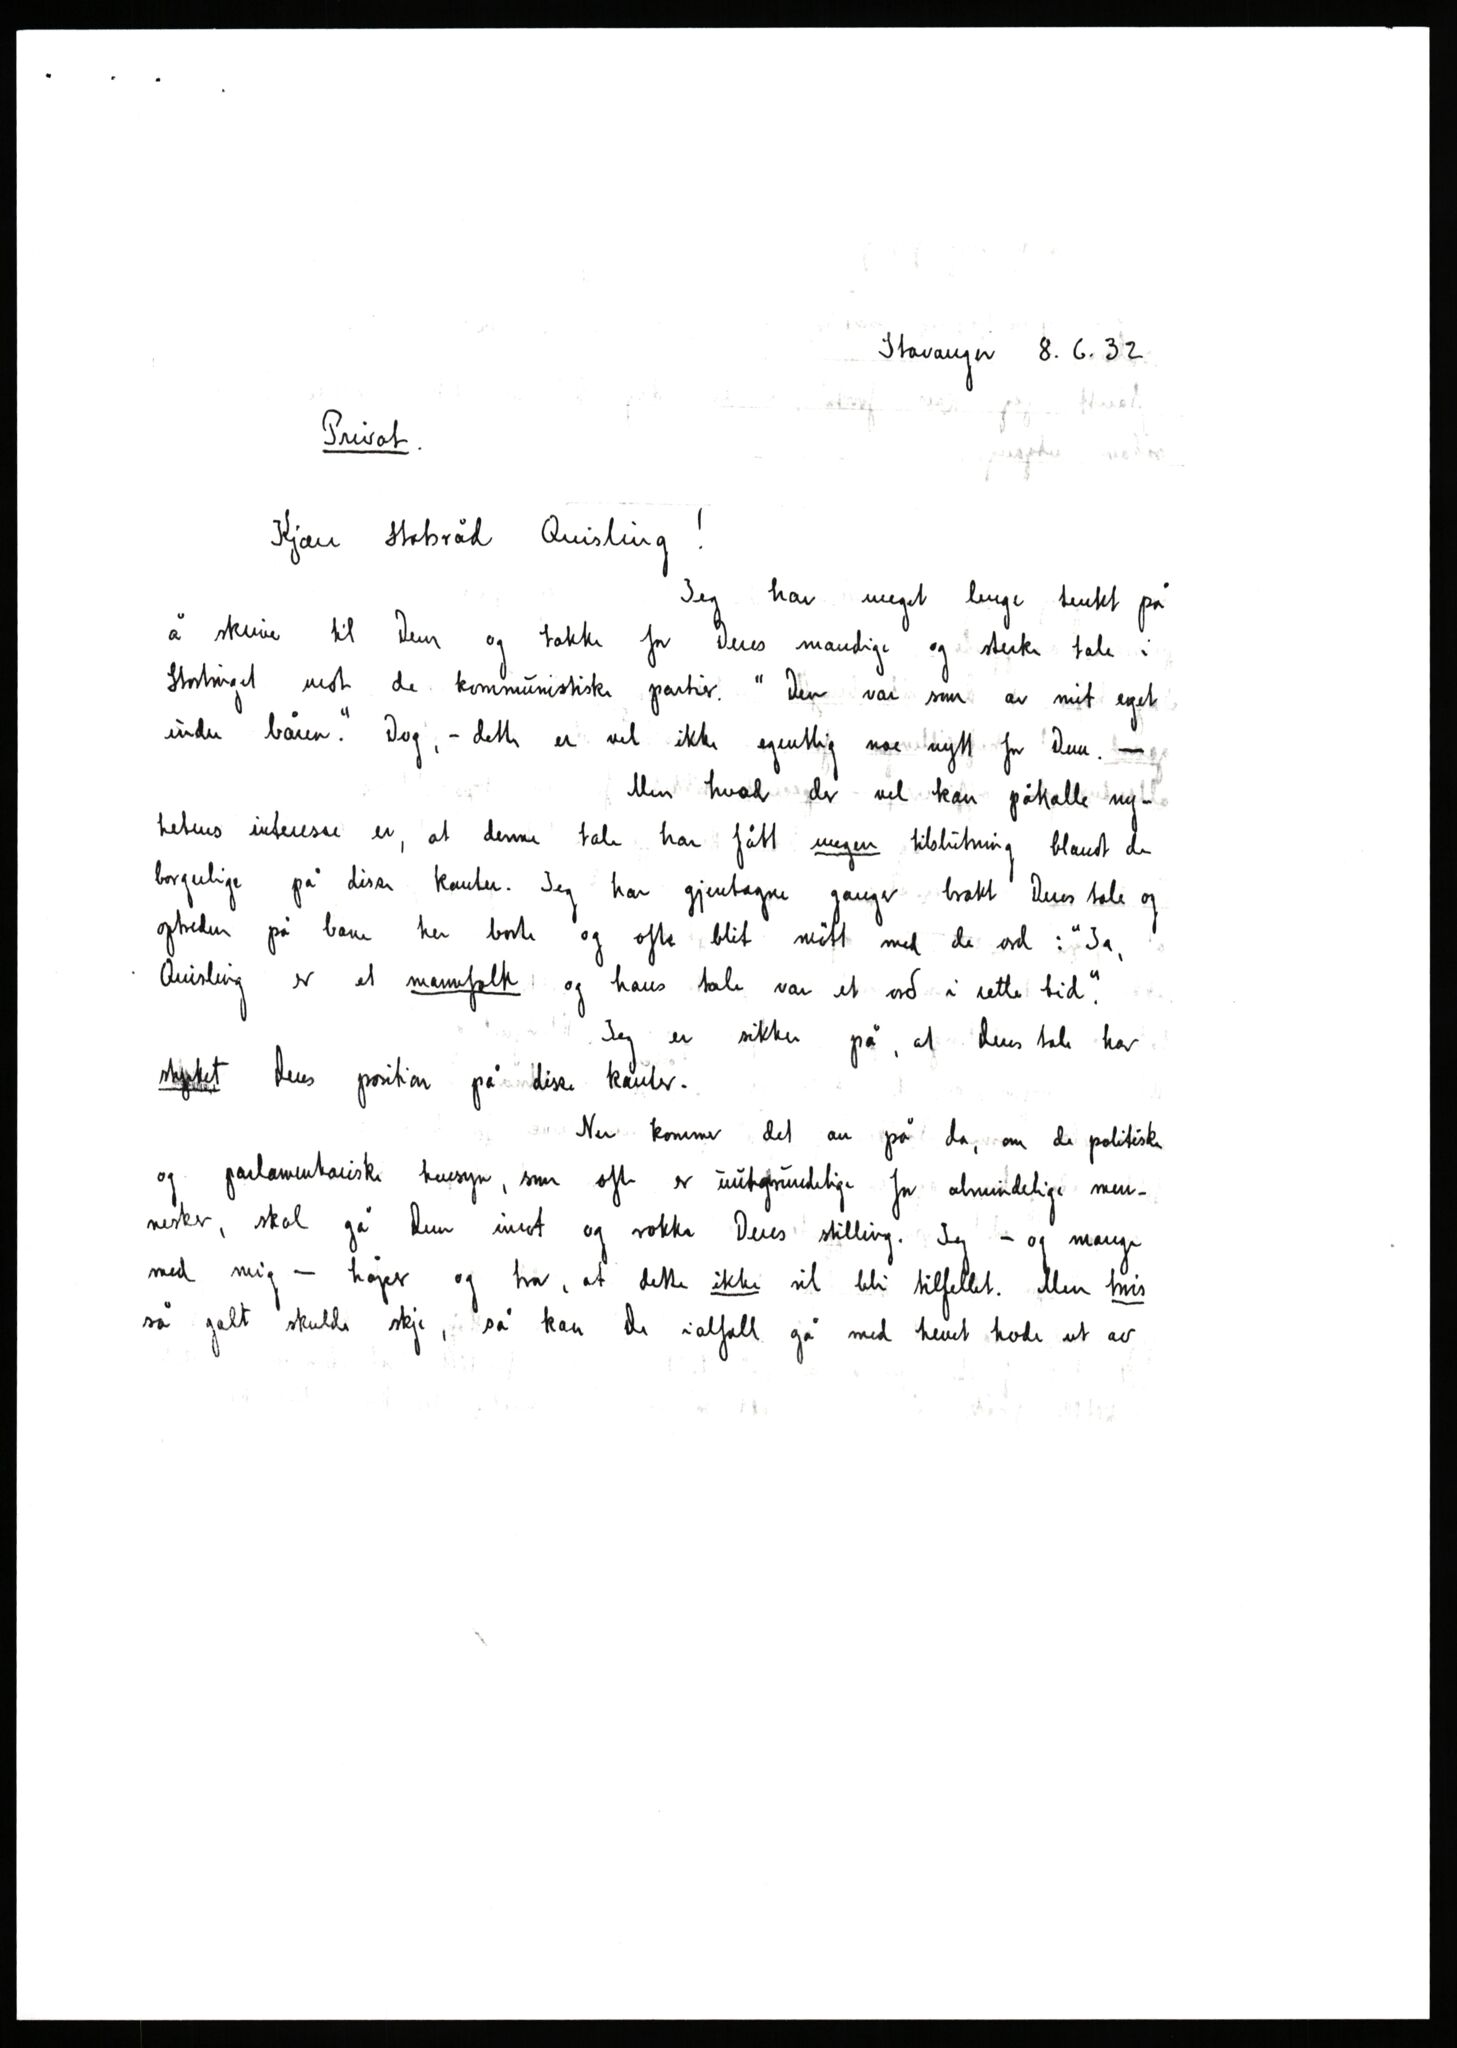 Stavanger 8.6.32
Privat.
Kjære Statsråd Quisling!
Jeg har meget lenge tenkt på
å skrive til Dem og takke for Deres mandige og sterke tale i
Stortinget mot de kommunistiske partier. "Den var som av mit eget
indre båren." Dog, - dette er vel ikke egentlig noe nytt for Dem. —
Men hvad der vel kan påkalle ny-
hetens interesse er, at denne tale har fått megen tilslutning blandt de
borgerlige på disse kanter. Jeg har gjentagne ganger brakt Deres tale og
optreden på bane her borte og ofte blit møtt med de ord: "Ja,
Quisling er et mannfolk og hans tale var et ord i rette tid."
Jeg er sikker på, at Deres tale har
styrket Deres position på disse kanter.
Nu kommer det an på da, om de politiske
og parlamentariske hensyn, som ofte er uutgrundelige for almindelige men-
nesker, skal gå Dem imot og rokke Deres stilling. Jeg - og mange
med mig - håper og tror, at dette ikke vil bli tilfellet. Men hvis
så galt skulde skje, så kan De ialfall gå med hevet hode ut av